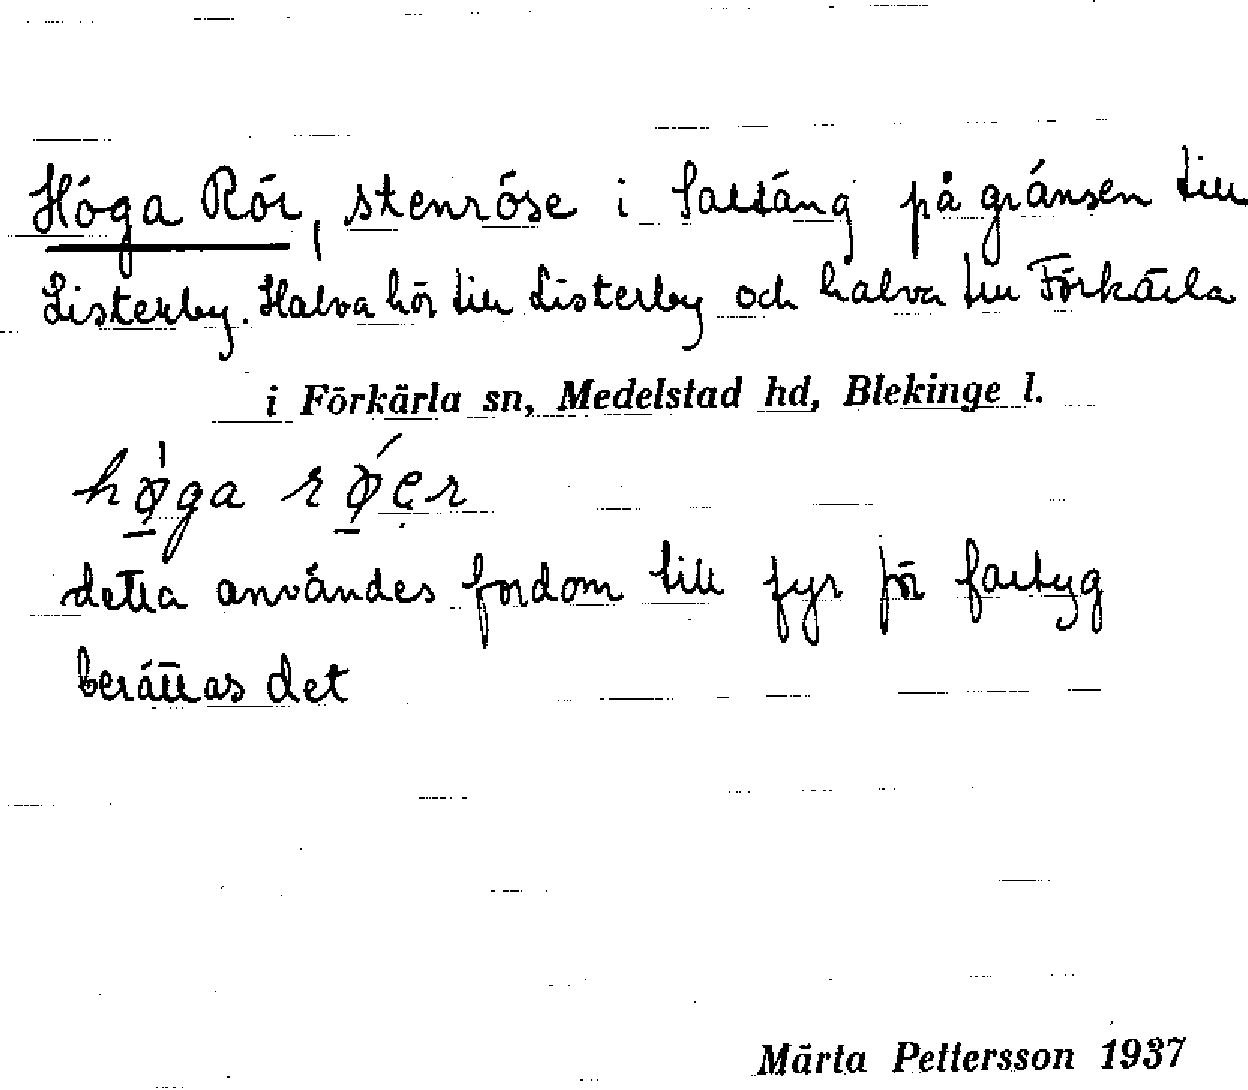 Höga Rör, stenröse i Saltäng på gränsen till
Listerby. Halva hör till Listerby och halva till Förkärla
i Förkärla sn, Medelstad hd, Blekinge l.
høga røer
detta användes fordom till fyr för fartyg
berättas det
Märta Pettersson 1937